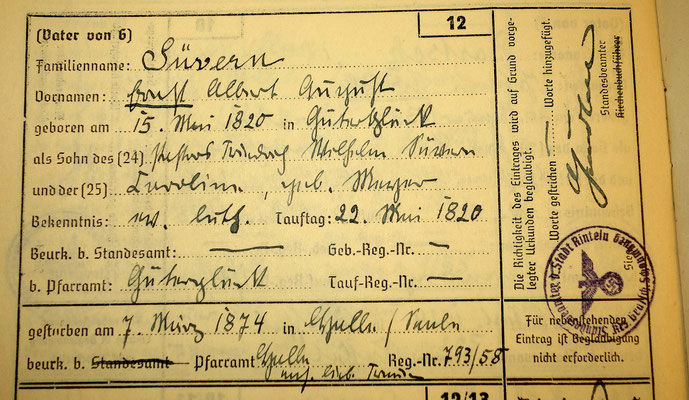 12
(Vater von 6)
Familienname: Süvern
Vornamen: Ernst Albert August
geboren am 15. Mai 1820 in Güterglück
als Sohn des (24) Pastors Friedrich Wilhelm Süvern
und der (25) Caroline, geb. Meyer
Bekenntnis: ev. luth. Tauftag: 22. Mai 1820
Beurk. b. Standesamt: — Geb.-Reg.-Nr. —
b. Pfarramt: Güterglück Tauf-Reg.-Nr. —
gestorben am 7. März 1874 in Halle / Saale
beurk. b. Standesamt Pfarramt Halle Reg.-Nr. 793/58
12/13
Die Richtigkeit des Eintrages wird auf Grund vorge-
legter Urkunden beglaubigt.
Worte gestrichen — Worte hinzugefügt.
Standesbeamter
Kirchenbuchführer
Für nebenstehenden
Eintrag ist Beglaubigung
nicht erforderlich.